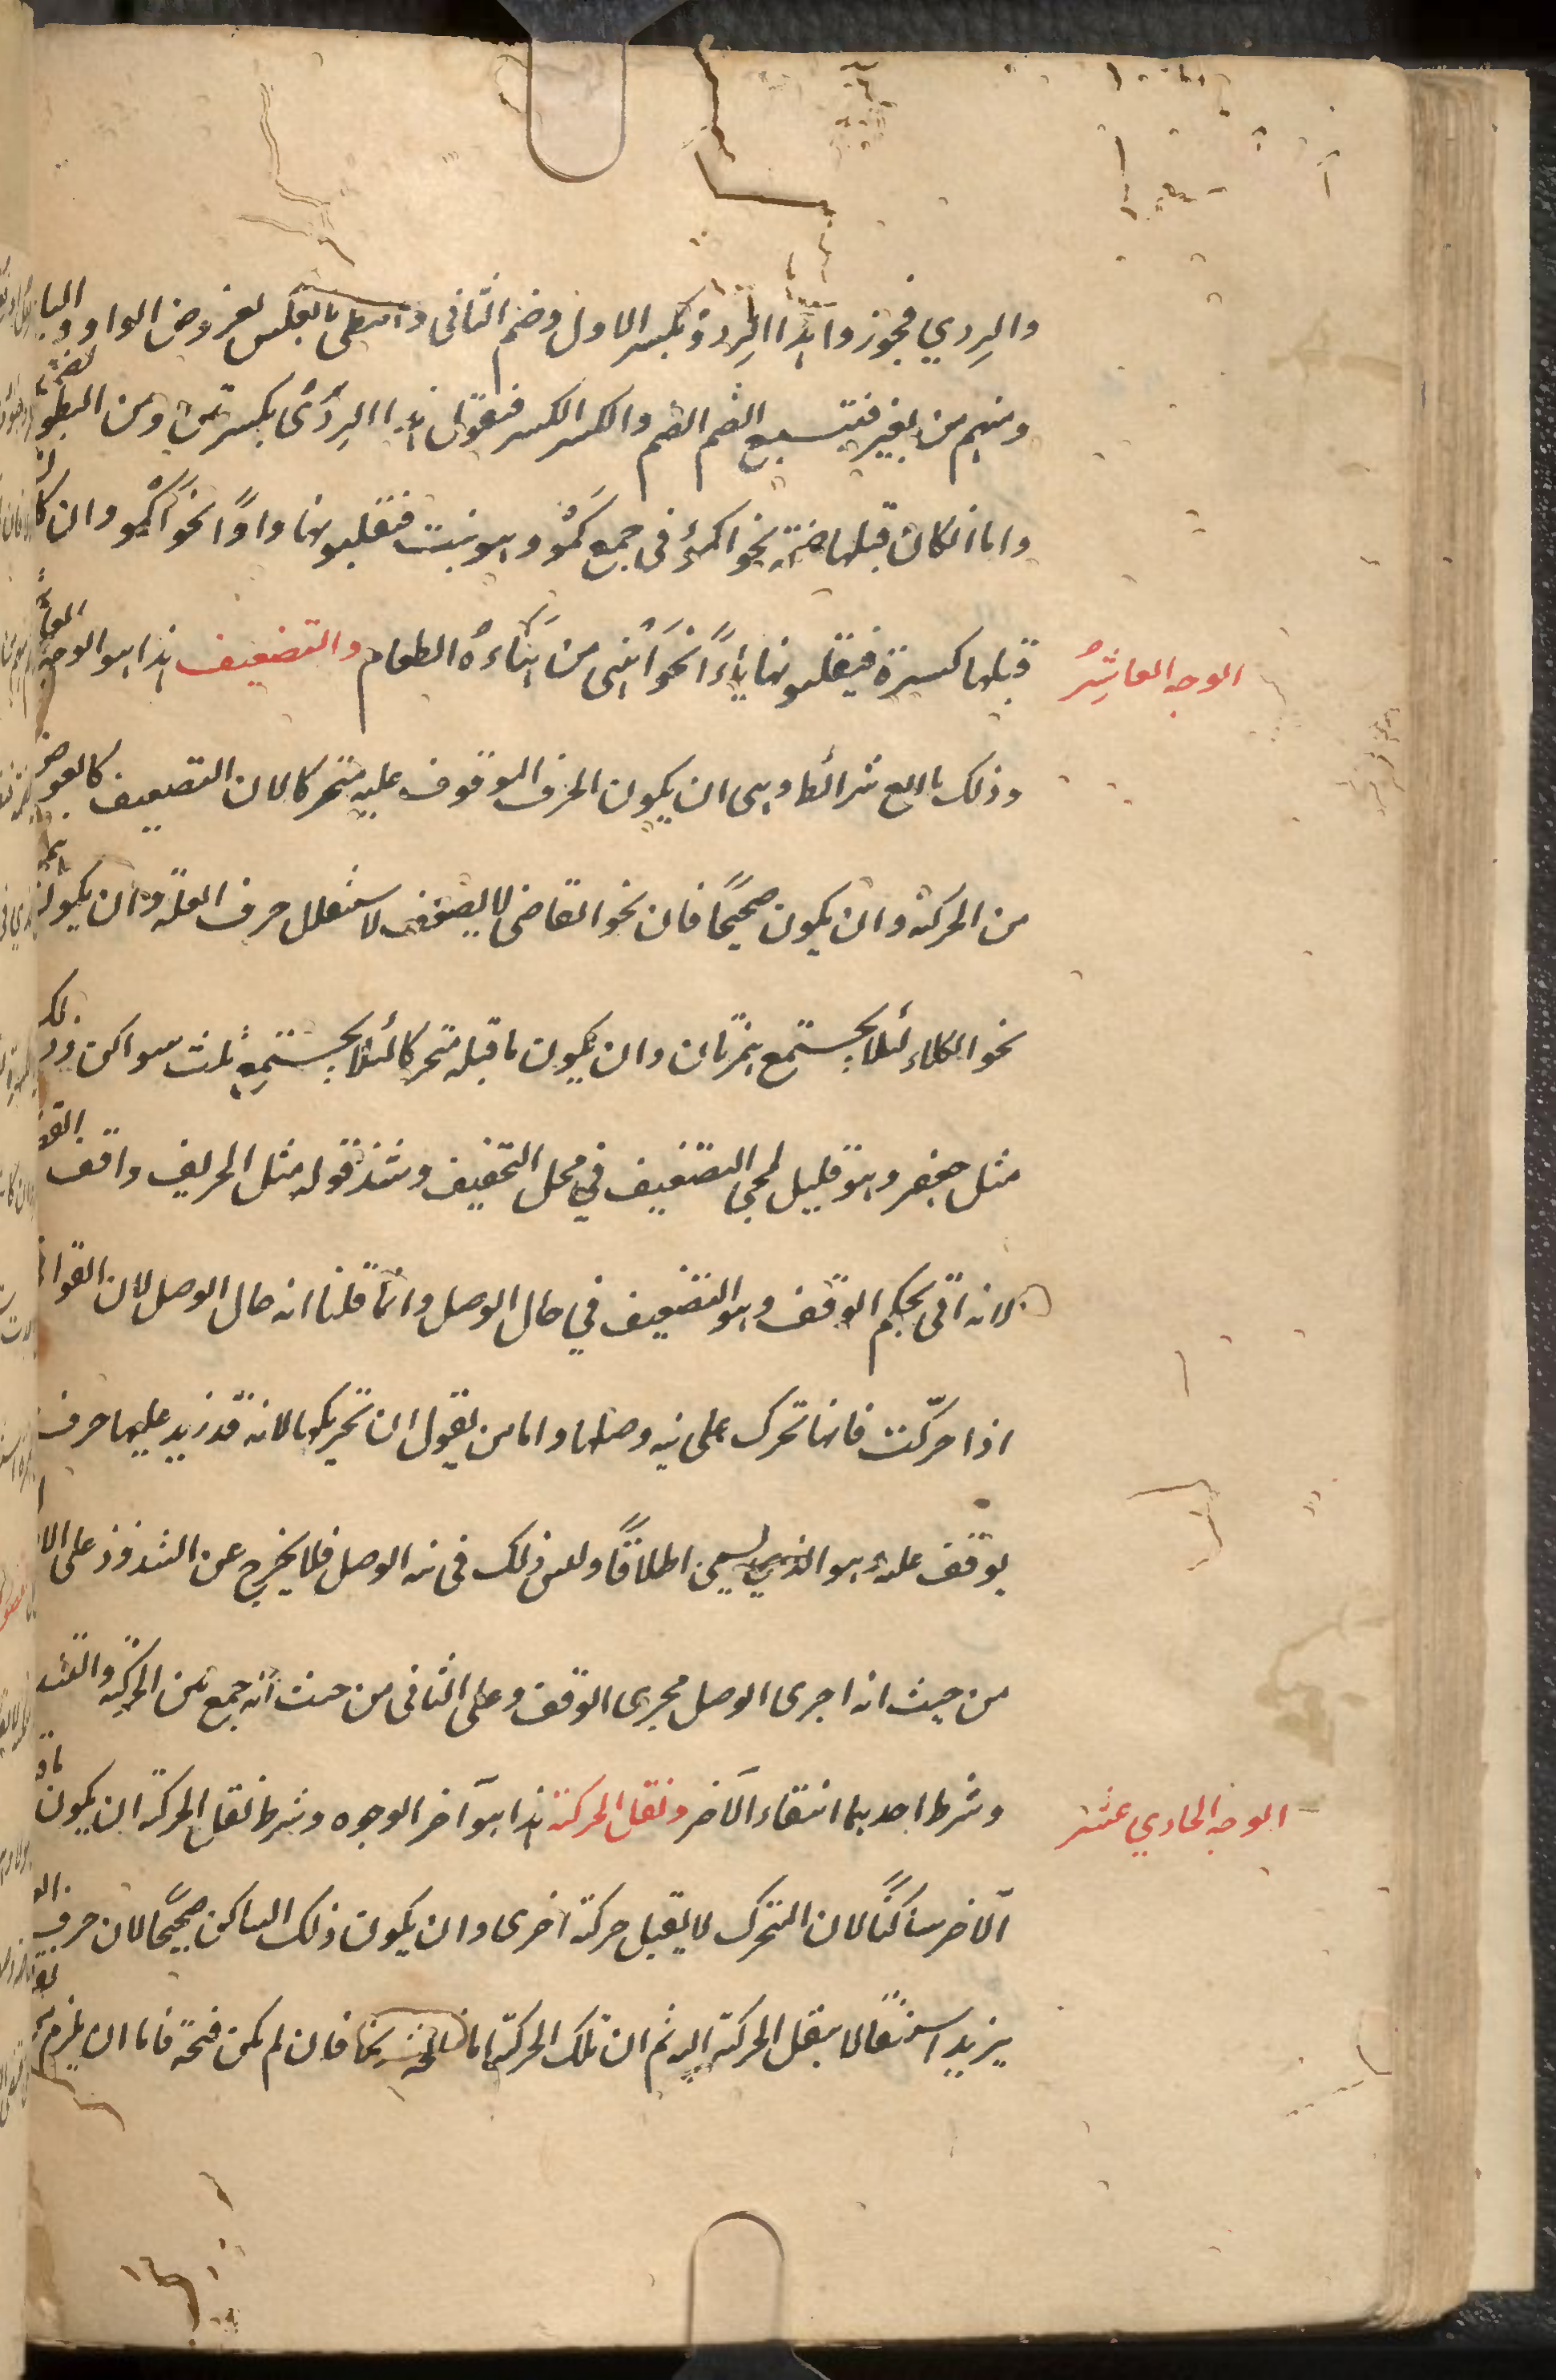 والرِدي فجوز وا هذا الرِدُو بكسر الاول وضم الثانى و البطى بالعكس لعروض الواو والياء
ومنهم من يفر فيتبع الضم الضم والكسر الكسر فيقول هذا الرِدِئ بكسرتين ومن البطو بضمتين
واما انكان قبلها ضمة نحو اكمُؤ فى جمع كمْو وهو نبت فيقلبونها واوًا نحو اَكْمُو وان كان
قبلها كسرة فيقلبونها ياءً نحو اَهْنِى من هَنَاءهُ الطعام والتضعيف هذا هو الوجه العاشر
الوجه العاشِرُ
وذلك باربع شرائط وهى ان يكون الحرف الموقوف عليه متحركا لان التضعيف كالعوض
من الحركة وان يكون صحيحًا فان نحو القاضى لا يضعف لاستثقال حرف العلة وان يكون
نحو الكلاء لئلا يجتمع همزتان وان يكون ما قبله متحركا لئلا يجتمع ثلث سواكن وذلك
مثل جعفر وهو قليل لمجى التضعيف في محل التخفيف وشذ قوله مثل الحريق وافق القصبا
لانه اتى بحكم الوقف وهو التضعيف في حال الوصل وانما قلنا انه حال الوصل لان القوا
اذا حرّكت فانها تحرك على نيه وصلها واما من يقول ان تحريكها لانه قد زيد عليها حرف
يوقف عليه وهو الذي يسمى اطلاقًا وليس ذلك فى نيه الوصل فلا يخرج عن الشذوذ على الا
من حيث انه اجرى الوصل مجرى الوقف وعلى الثانى من حيث انه جمع بين الحركة والتشد
وشرط احديهما انتفاء الآخر ونقل الحركة هذا هو آخر الوجوه وشرط نقل الحركة ان يكون ما
الوجه الحادي عشر
الآخر ساكنًا لان المتحرك لا يقبل حركة اخرى وان يكون ذلك الساكن صحيحًا لان حرف
يزيد استثقالا بنقل الحركة اليه ثم ان تلك الحركة اما فان لم يكن فتحة فاما ان يلزم